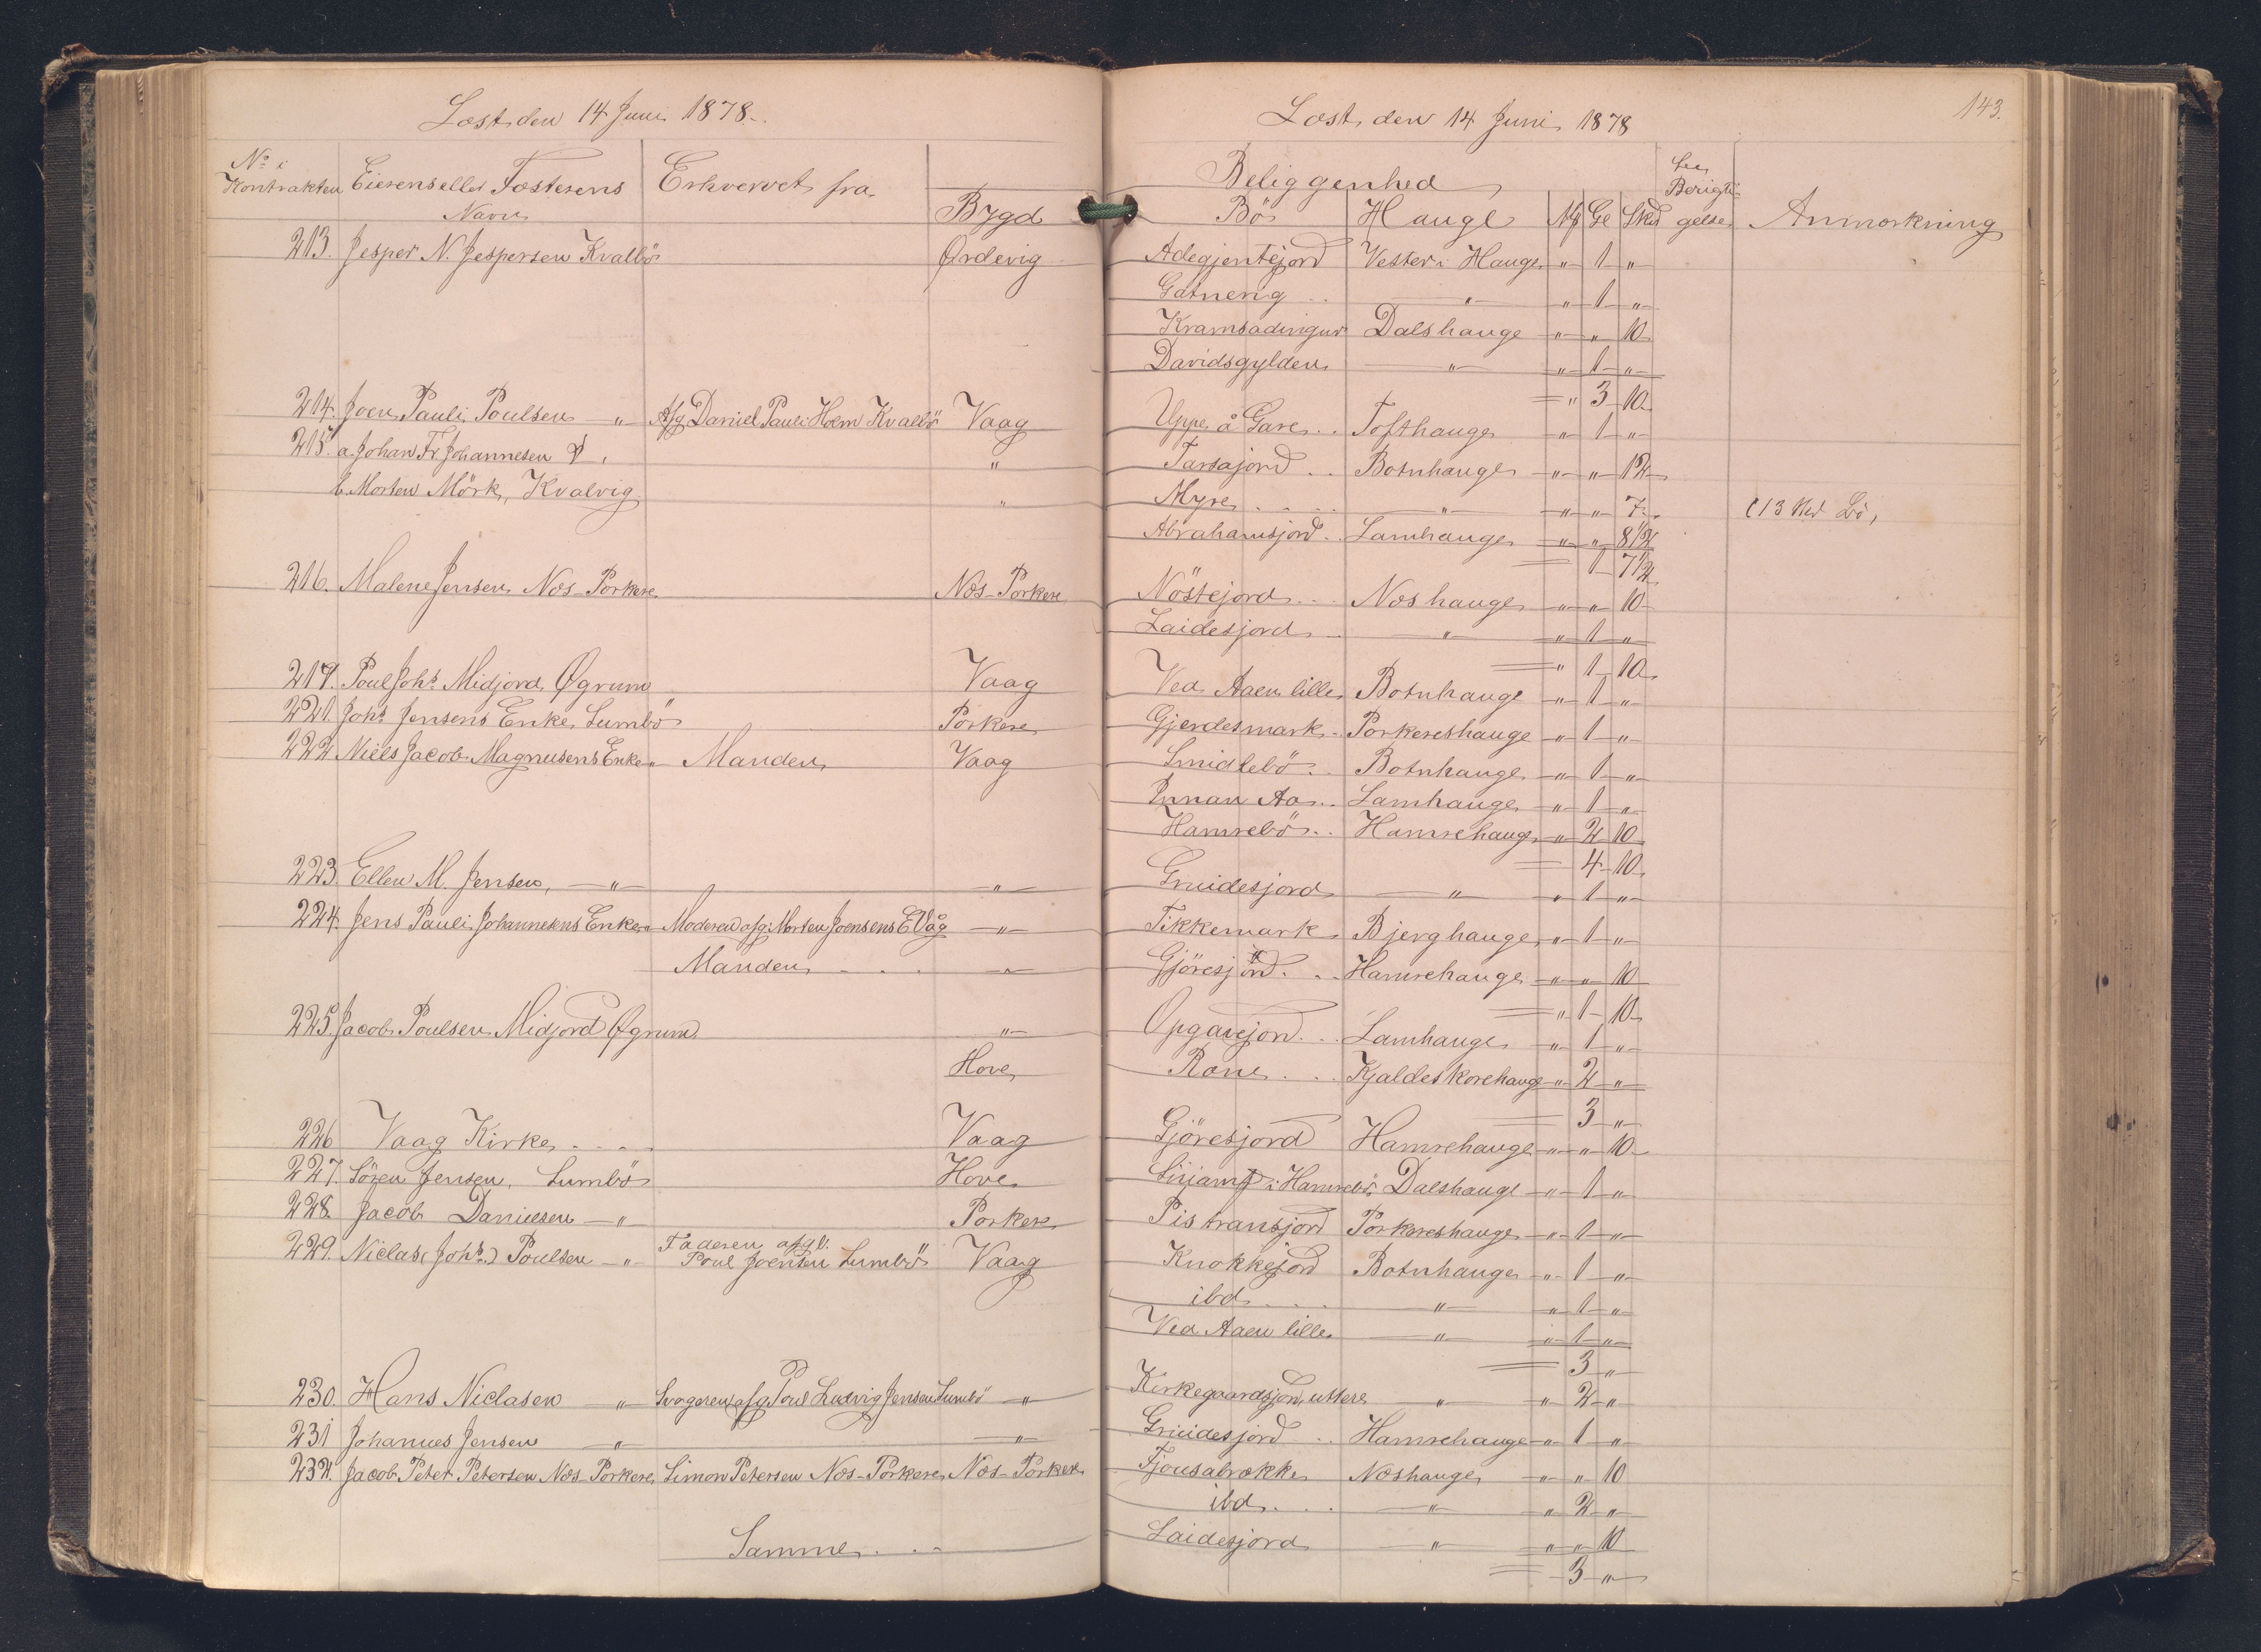 Læst den 14 Juni 1878.
No i Kontrakten Eierens eller Fæsterens Navn Erhvervet fra Bygd
213. Jesper N. Jespersen Kvalbö Ørdevig
214. Joen Pauli Poulsen " Afg. Daniel Pauli Holm Kvalbö Vaag
215. a. Johan Fr. Johannesen "
b. Morten Mörk, Kvalvig "
216. Malene Jensen Næs-Porkere Næs-Porkere
219. Poul Johs. Midjord Øgrum Vaag
221. Johs. Jensens Enke Sumbö Porkere
222 Niels Jacob Magnusens Enke " Manden Vaag
223. Ellen M. Jensen, " "
224. Jens Pauli Johannesens Enke " Moderen afg. Morten Joensens E Våg "
Manden . . . "
225. Jacob Poulsen Midjord Øgrum "
Hove
226 Vaag Kirke . . . Vaag
227. Sören Jensen. Sumbö Hove
228. Jacob Danielsen " Porkere
229. Niclas (Johs.) Poulsen " Faderen afgl. Poul Joensen Sumbö Vaag
230. Hans Niclasen " Svogeren afg. Poul Ludvig Jensen Sumbö "
231 Johannes Jensen " "
232. Jacob Peter Petersen Næs-Porkere Simon Petersen Næs-Porkere Næs-Porkere
Samme . . .
143.
Læst den 14 Juni 1878
Beliggenhed
Bö Hauge Mk Gl Skd Berigtigelse Anmærkning
Adegjentejord Vester i Hauge " 1 "
Gatnerig . . " " 1 "
Kramsadingur Dalshauge " " 10
Davidsgylden " " 1 "
= " 3 10
Uppe å Gare . . Tofthauge " 1 "
Tarsajord . . Botnhauge " " 12
Myre . . . . " " " 7 (13 Skd Bö,
Abrahamsjord . . Lamhauge " " 8 1/2
= 1 7 1/2
Nöstejord . . . Næshauge " " 10
Laidesjord . . " " 1 "
= " 1 10
Ved Aaen lille Botnhauge " 1 "
Gjerdesmark . Porkereshauge " 1 "
Smidlebö . . Botnhauge " 1 "
Innan Aa . . Lamhauge " 1 "
Hamrebö . . Hamrehauge " 2 10
= 4 10
Gruidesjord " " 1 "
Tikkemark Bjerghauge " 1 "
Gjöresjord . . . Hamrehauge " " 10
= " 1 10
Opgarejord . . . Lamhauge " 1 "
Rane . . . Kjaldeskorehauge " 2 "
= 3 "
Gjöresjord Hamrehauge " " 10
i Hamrebö Dalshauge " 1 "
Pistransjord Porkereshauge " 1 "
Knokkejord Botnhauge " 1 "
ibd . . . " " 1 "
Ved Aaen lille " " 1 "
= 3 "
Kirkegaardsjord, uttere " " 2 "
Gruidesjord . . Hamrehauge " 1 "
Fjousabrække Næshauge " " 10
ibd . . . " " 2 "
Laidesjord " " " 10
= 3 "